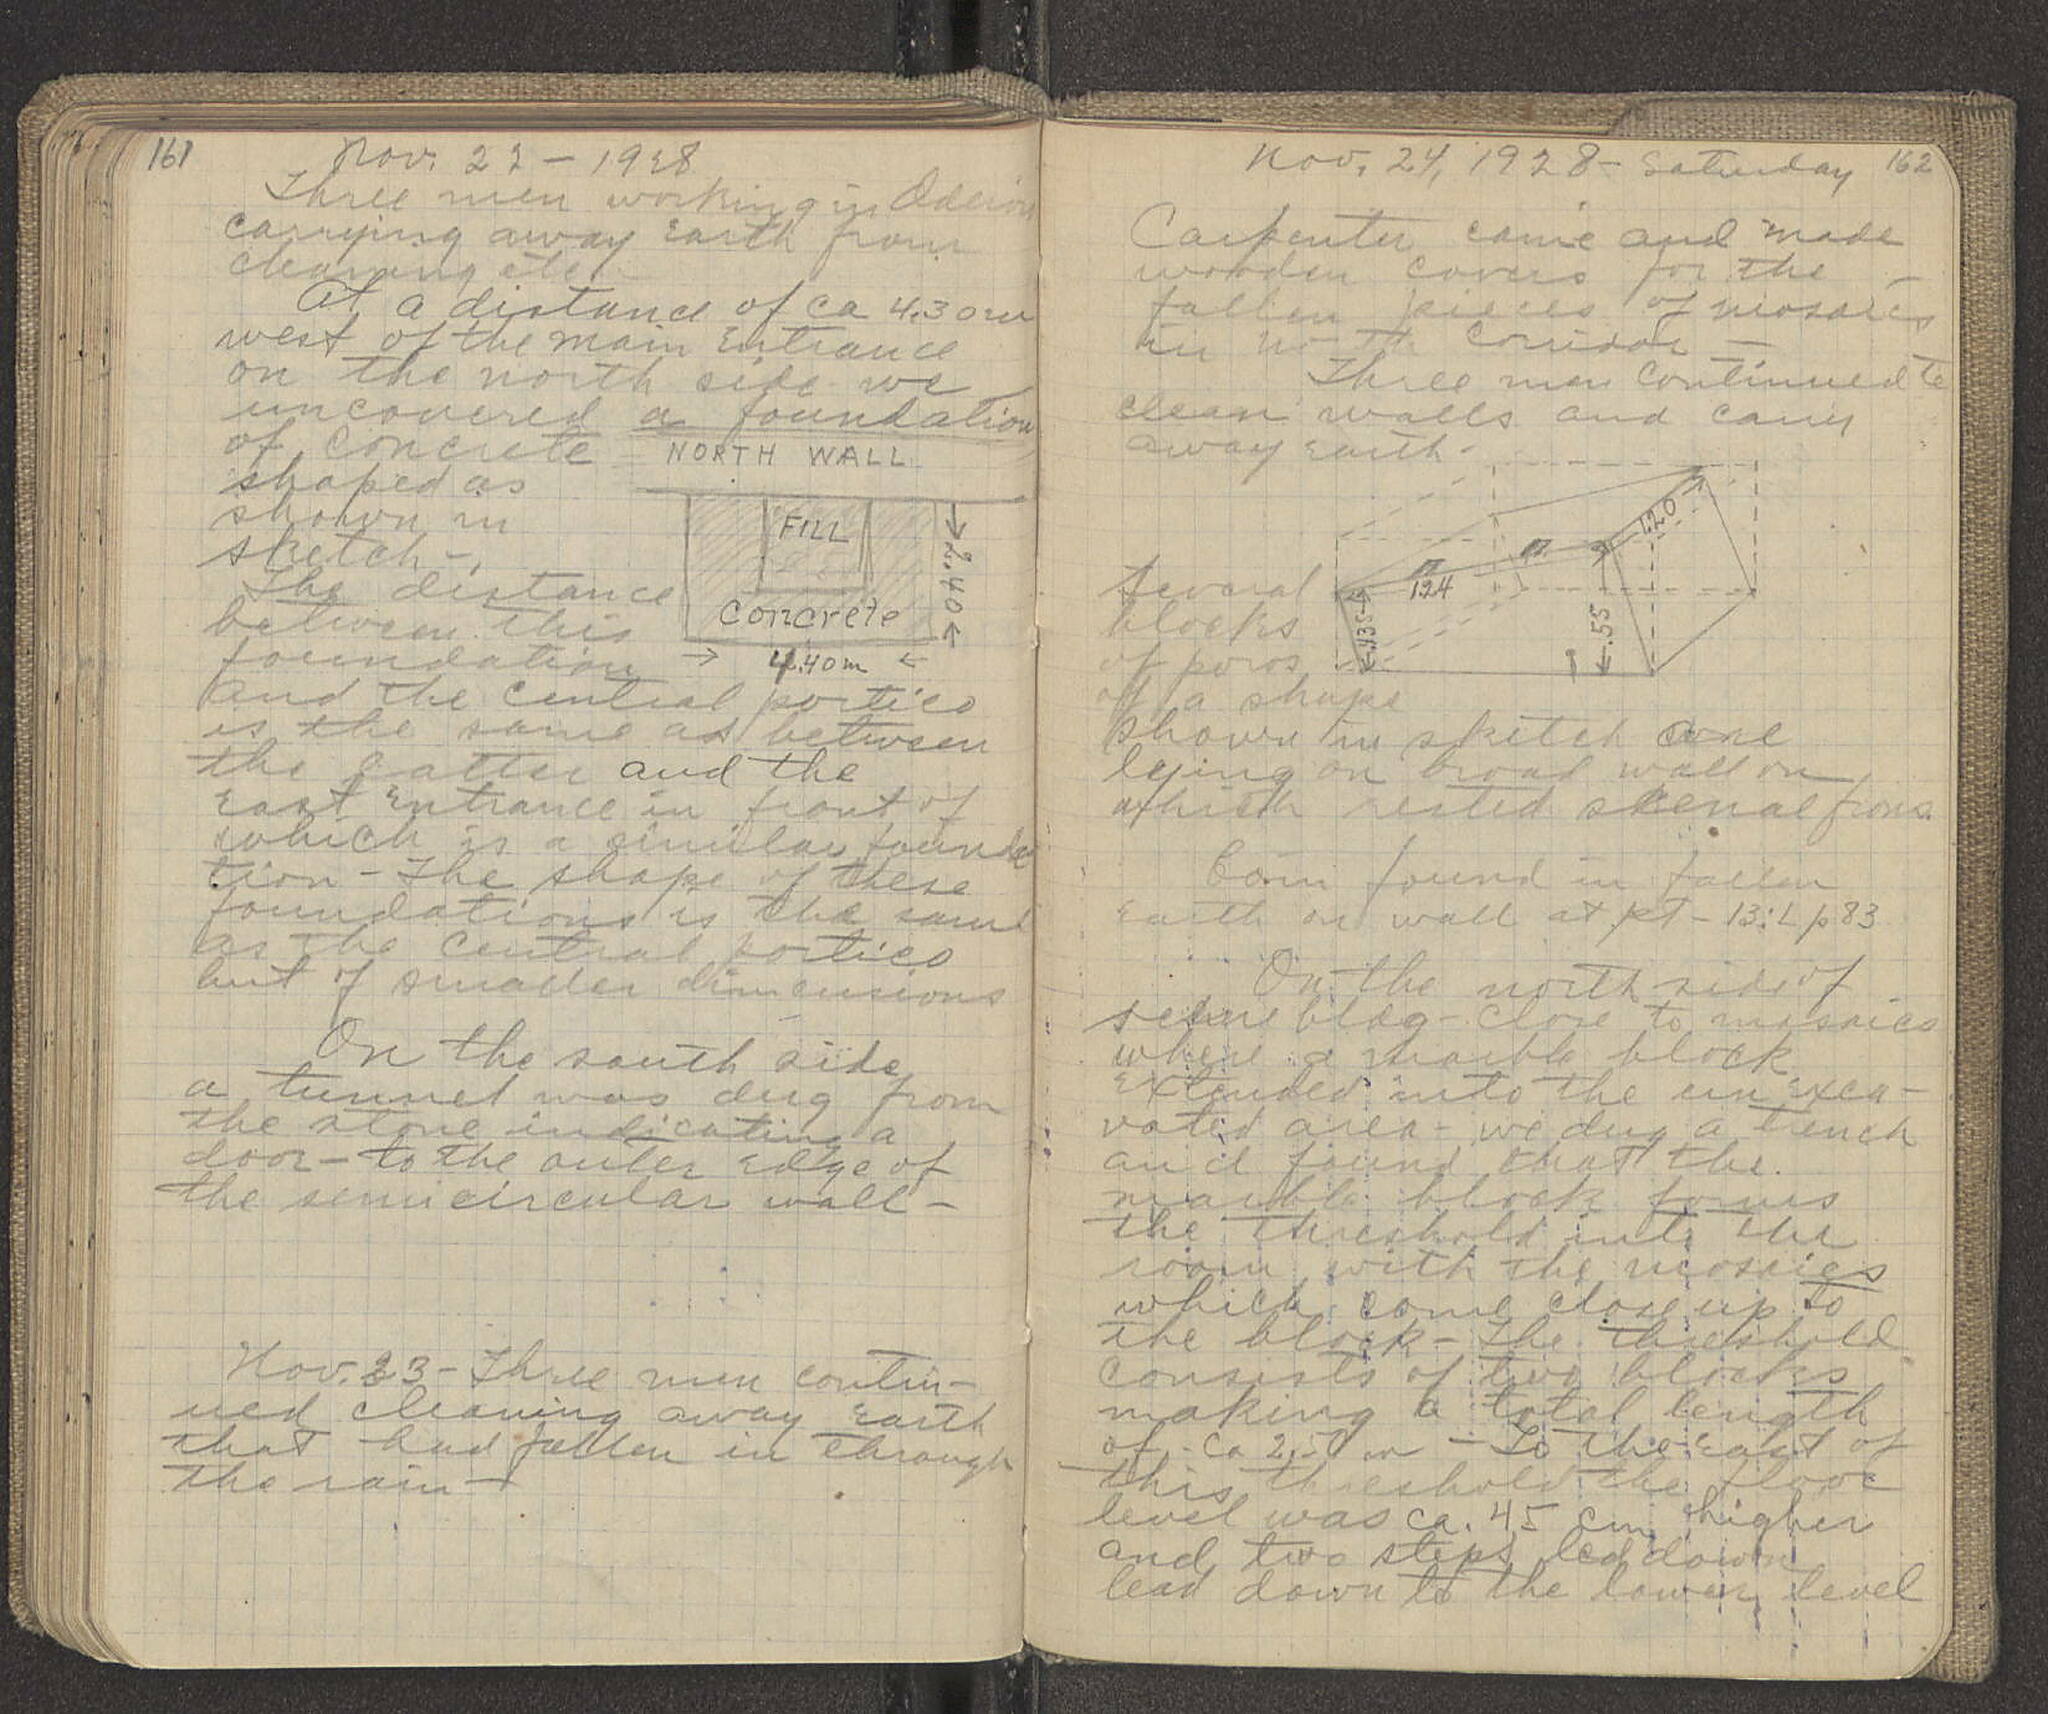 161
Nov. 22 - 1928
Three men working in Odeion
carrying away earth from
cleaning etc. -
At a distance of ca 4.30m
west of the main entrance
on the north side we
uncovered a foundation
of concrete
shaped as
shown in
sketch -.
NORTH WALL
FILL
Concrete
2.40
4.40m
The distance
between this
foundation
and the central portico
is the same as between
the latter and the
East Entrance in front of
which is a similar founda
tion - The shape of these
foundations is the same
as the central portico
but of smaller dimensions
On the south side
a tunnel was dug from
the stone indicating a
door - to the outer edge of
the semicircular wall -
Nov. 23 - Three men contin-
ued cleaning away earth
that had fallen in through
the rain -
Nov. 24, 1928 - Saturday 162
Carpenter came and made
wooden covers for the
fallen pieces of mosaics
in north corridor -
Three men continued to
clean walls and carry
away earth -
1.20
1.24
.435
.55
Several
blocks
of poros
of a shape
shown in sketch
lying on broad wall on
which rested skenai frons.
Coin found in fallen
earth on wall at pt - 13:L p 83
On the north side of
scene bldg - close to mosaics
where a marble block
extended into the unexca-
vated area - we dug a trench
and found that the
marble block forms
the threshold into the
room with the mosaics
which come close up to
the block - The threshold
consists of two blocks
making a total length
of ca m - To the east of
this threshold the floor
level was ca. 45 cm higher
and two steps led down
lead down to the lower level